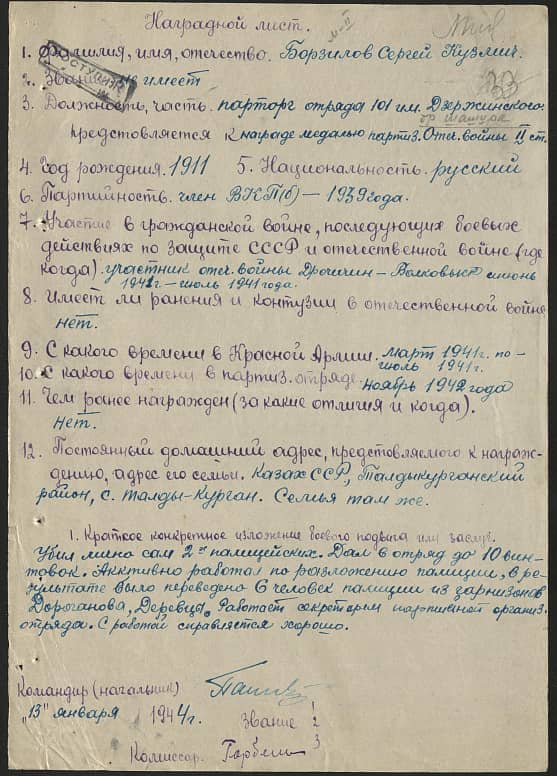 Наградной лист.
1. Фамилия, имя, отчество. Борзилов Сергей Кузмич.
2. Звание не имеет
3. Должность, часть. парторг отряда 101 им. Дзержинского
бр Машура
представляется к награде медалью партиз. Отеч. войны II ст.
4. Год рождения. 1911 5. Национальность. русский
6. Партийность. член ВКП(б) – 1939 года.
7. Участие в гражданской войне, последующих боевых
действиях по защите СССР и отечественной войне (где
когда). участник отеч. войны Дрогичин – Волковыск июнь
1941 г. – июль 1941 года.
8. Имеет ли ранения и контузии в отечественной войне
нет.
9. С какого времени в Красной Армии. март 1941 г. по –
июль 1941 г.
10. С какого времени в партиз. отряде. ноябрь 1942 года
11. Чем ранее награжден (за какие отличия и когда).
нет.
12. Постоянный домашний адрес, представляемого к награж-
дению, адрес его семьи. Казах ССР, Талдыкурганский
район, с. Талды-Курган. Семья там же.
1. Краткое конкретное изложение боевого подвига или заслуг.
Убил лично сам 2х палицейских. Дал в отряд до 10 вин-
товок. Акктивно работал по разложению палиции, в ре-
зультате было переведено 6 человек палиции из гарнизонов
Дороганова, Деревцы. Работает секретарем партийной организ.
отряда. С работой справляется хорошо.
Командир (начальник)
"13" января 1944 г. Звание
Комиссар.